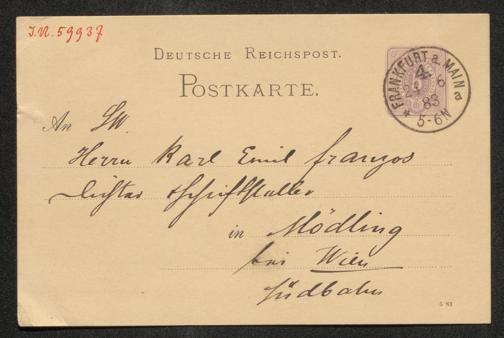 I.N. 59937
DEUTSCHE REICHSPOST.
POSTKARTE.
FRANKFURT a. MAIN
4.
24 6
83
* 5-6N
An Sr.
Herrn Karl Emil Franzos
Dichter & Schriftsteller
in Mödling
bei Wien
Südbahn
5 83